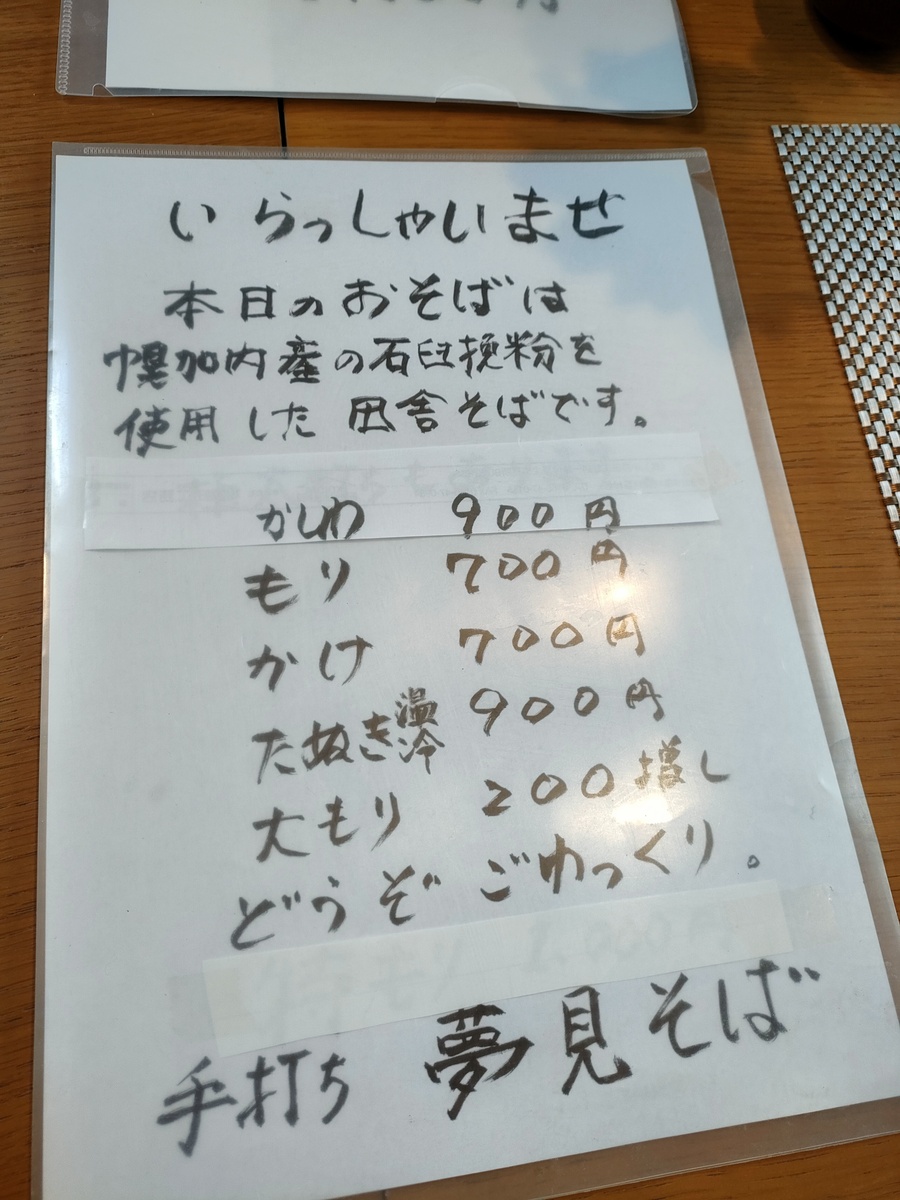 いらっしゃいませ
本日のおそばは
幌加内産の石臼挽粉を
使用した田舎そばです。
かしわ 900円
もり 700円
かけ 700円
たぬき温冷 900円
大もり 200増し
どうぞごゆっくり。
手打ち 夢見そば